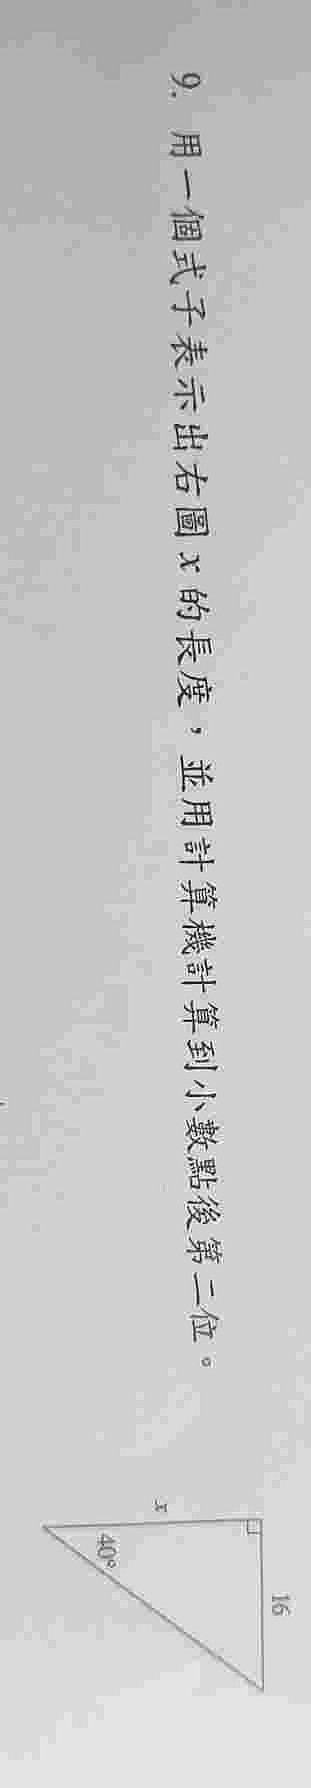 9. 用一個式子表示出右圖x的長度，並用計算機計算到小數點後第二位。
16
x
40°